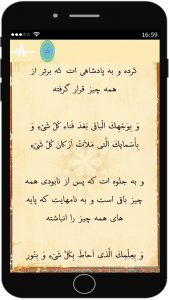 16:59
کرده و به پادشاهی ات که برتر از
همه چیز قرار گرفته
وَ بِوَجْهِكَ الْبَاقِی بَعْدَ فَنَاءِ كُلِّ شَیْءٍ وَ
بِأَسْمَائِكَ الَّتِی مَلَأَتْ أَرْكَانَ كُلِّ شَیْءٍ
و به جلوه ات که پس از نابودی همه
چیز باقی است و به نامهایت که پایه
های همه چیز را انباشته
وَ بِعِلْمِكَ الَّذِی أَحَاطَ بِكُلِّ شَیْءٍ وَ بِنُورِ